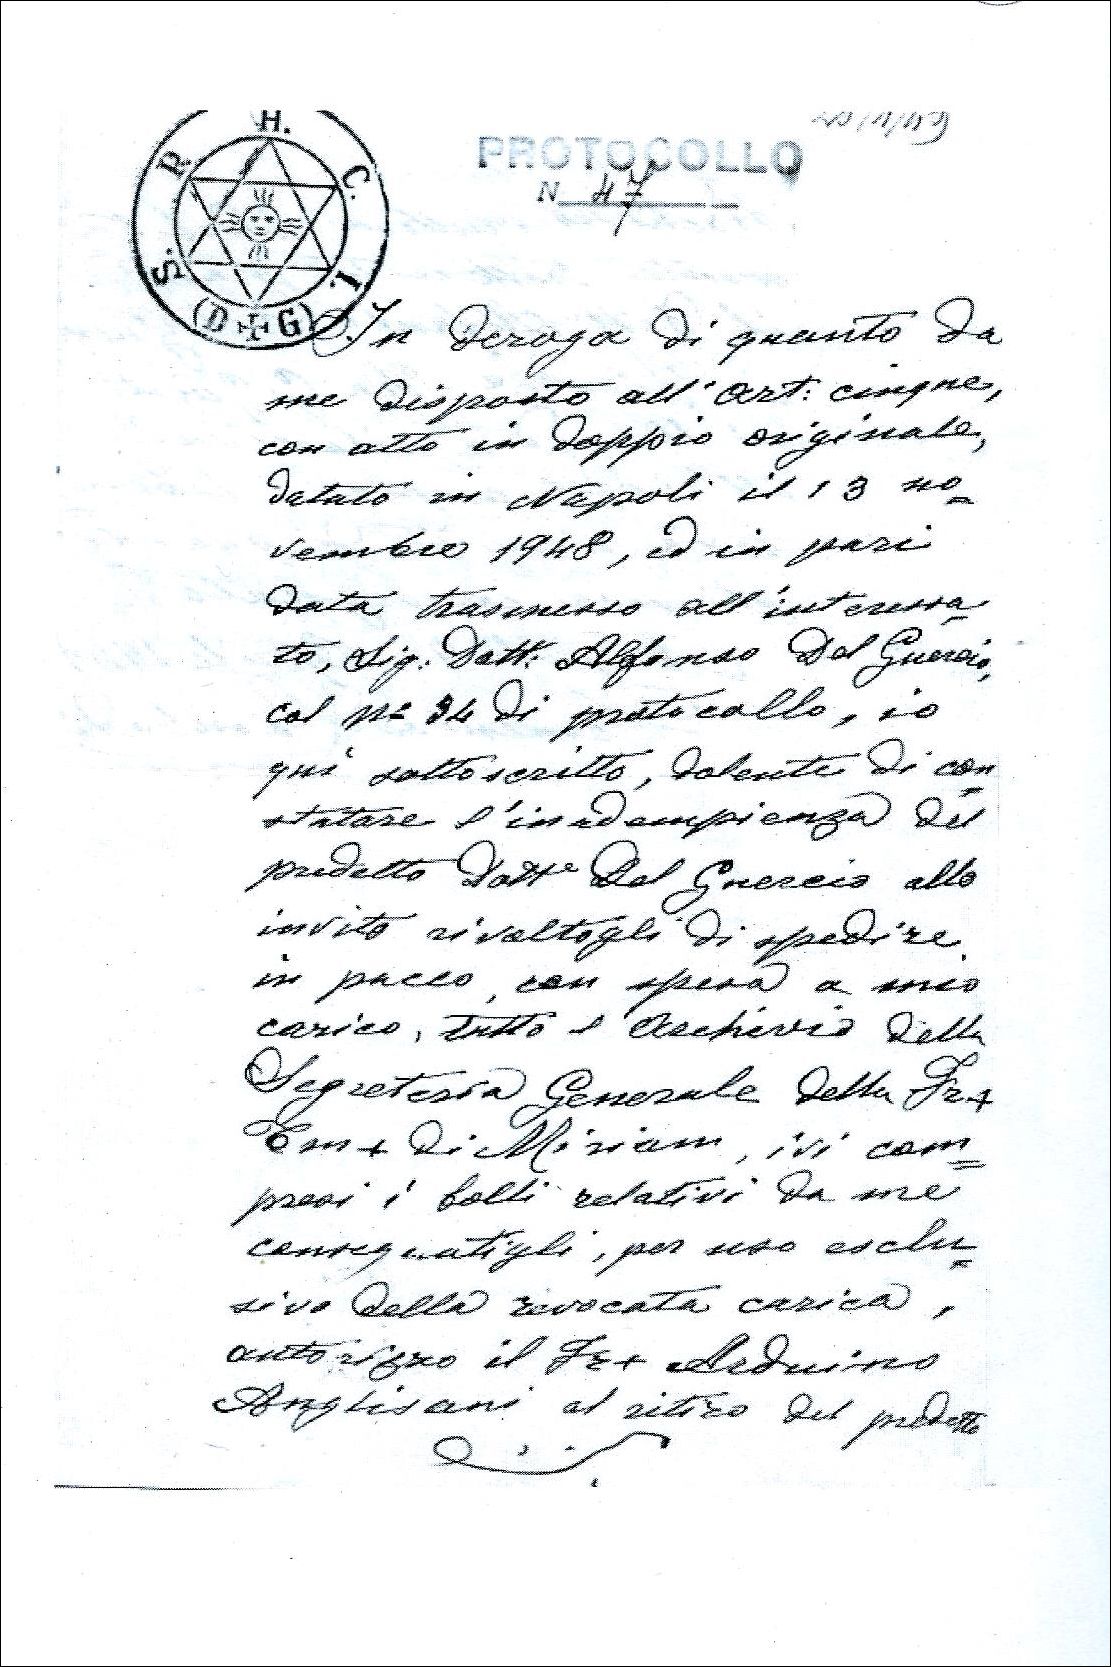 S. R. H. C. I.
(D ✠ G)
PROTOCOLLO
N 47
In deroga di quanto da
me disposto all'art: cinque,
con atto in doppio originale,
datato in Napoli il 13 no=
vembre 1948, ed in pari
data trasmesso all'interessa=
to, Sig: Dott: Alfonso Del Guercio,
col Nº 34 di protocollo, io
qui sottoscritto, dolente di con=
statare l'inadempienza del
predetto Dottr Del Guercio allo
invito rivoltogli di spedire
in pacco, con spesa a mio
carico, tutto l'Archivio della
Segreteria Generale della Fr+
Tm+ di Miriam, ivi com=
presi i bolli relativi da me
consegnatigli, per uso esclu=
sivo della revocata carica,
autorizzo il Fr+ Arduino
Anglisani al ritiro del predetto